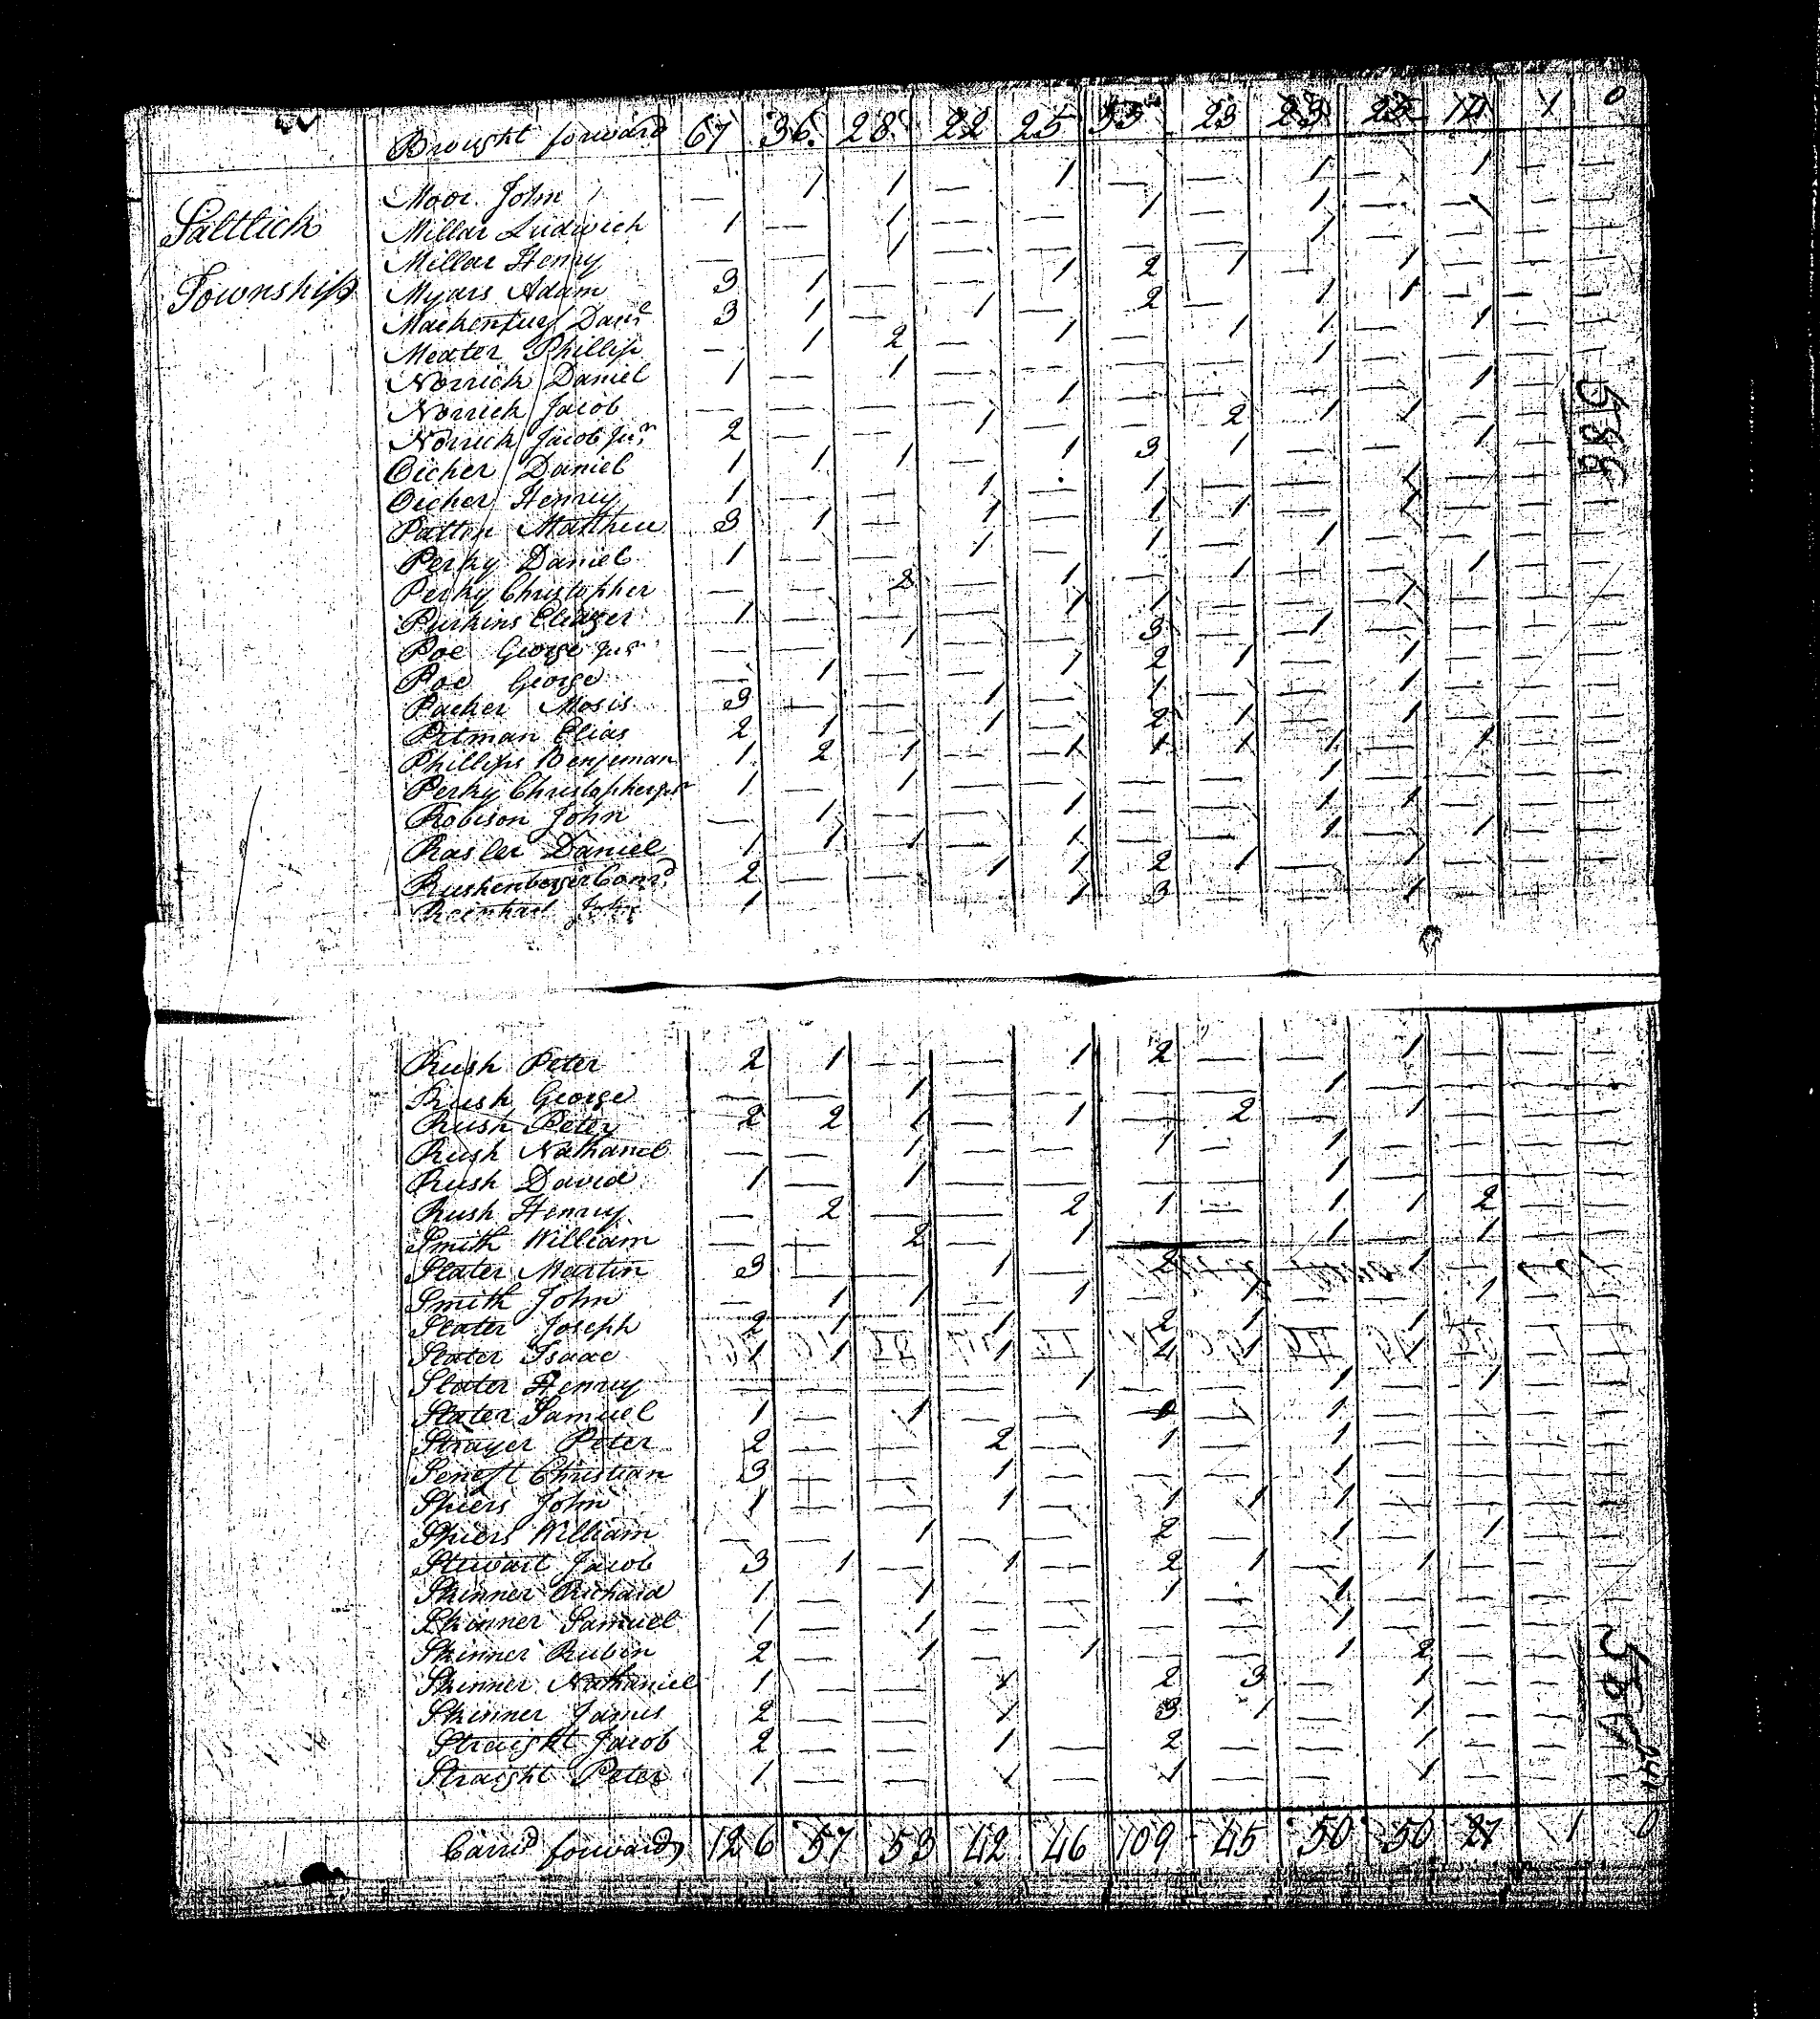 Brought forward 67 36 28 22 25 53 23 23 25 14 1 0
Saltlick
Township
Moor John — 1 1 — 1 — — 1 — 1 — —
Millar Ludwich 1 — 1 — — 1 — 1 — — — —
Millar Henry — — 1 — — — — 1 — — — —
Myars Adam 3 1 — — 1 2 1 — 1 — — —
Danl 3 1 — 1 — 2 — 1 1 — — —
Meater Phillip — 1 2 — 1 — 1 1 — 1 — —
Norrich Daniel 1 — 1 — — — — 1 — — — —
Norrich Jacob — — — — 1 — — — — 1 — —
Norrich Jacob Junr 2 — — 1 — — 2 1 1 — — —
Oicher Daniel 1 1 1 — 1 3 1 — — 1 — —
Oicher Henry 1 — — 1 — 1 — — 1 — — —
Patton Matthew 3 1 — 1 — 1 1 — 1 — — —
Perky Daniel 1 — — 1 — 1 — 1 — — — —
Perky Christopher — — 2 — 1 — 1 — — 1 — —
Purkins Eliazer 1 — — — 1 1 — — 1 — — —
Poe George Junr — — 1 — — 3 — 1 — — — —
Poe George — 1 — — 1 2 1 — 1 — — —
Packer Mosis 3 — — 1 — 1 — — 1 — — —
Pitman Elias 2 1 — 1 — 2 1 — 1 — — —
Phillips Benjeman 1 2 1 — 1 1 1 1 — 1 — —
Perky Christopher Junr 1 — 1 — — — — 1 — — — —
Robison John — 1 — — 1 — — 1 1 — — —
Rasler Daniel 1 1 1 — 1 — — 1 — 1 — —
Rushenberger Conrd 2 — — 1 1 2 1 — 1 — — —
Reinhart John 1 — — — 1 3 — — 1 — — —
586
Rush Peter 2 1 — — 1 2 — — 1 — — —
Rush George — — 1 — — — — 1 — — — —
Rush Peter 2 2 1 — 1 — 2 — 1 — — —
Rush Nathaniel — — 1 — — 1 — 1 — — — —
Rush David 1 — 1 — — — — 1 — — — —
Rush Henry — 2 — — 2 1 — 1 1 2 — —
Smith William — — 2 — 1 — — 1 — 1 — —
Slater Martin 3 — — 1 — 2 — — 1 — — —
Smith John — 1 1 — 1 — 1 — — 1 — —
Slater Joseph 2 1 — 1 — 2 1 — 1 — — —
Slater Isaac 1 1 1 4 1
Slater Henry — — — — 1 — — 1 — 1 — —
Slater Samuel 1 — 1 — — — 1 — — — —
Strayer Peter 2 — — 2 — 1 — 1 — — — —
Seneft Christian 3 — — 1 — — — 1 — — — —
Shiers John 1 — — 1 — 1 1 1 — — — —
Shiers William — — 1 — — 2 — 1 — 1 — —
Stewart Jacob 3 1 — 1 — 2 1 — 1 — — —
Skinner Richard 1 — 1 — — 1 — 1 — — — —
Skinner Samuel 1 — 1 — — — — 1 — — — —
Skinner Rubin 2 — 1 — 1 — — 1 2 — — —
Skinner Nathaniel 1 — — 1 2 3 — 1 — — —
Skinner James 2 — — 1 3 1 — 1 — — —
Straight Jacob 2 — — 1 — 2 — — 1 — — —
Straight Peter 1 — — 1 — 1 — — 1 — — —
241
Carrd forward 126 57 53 42 46 109 45 50 50 27 1 0